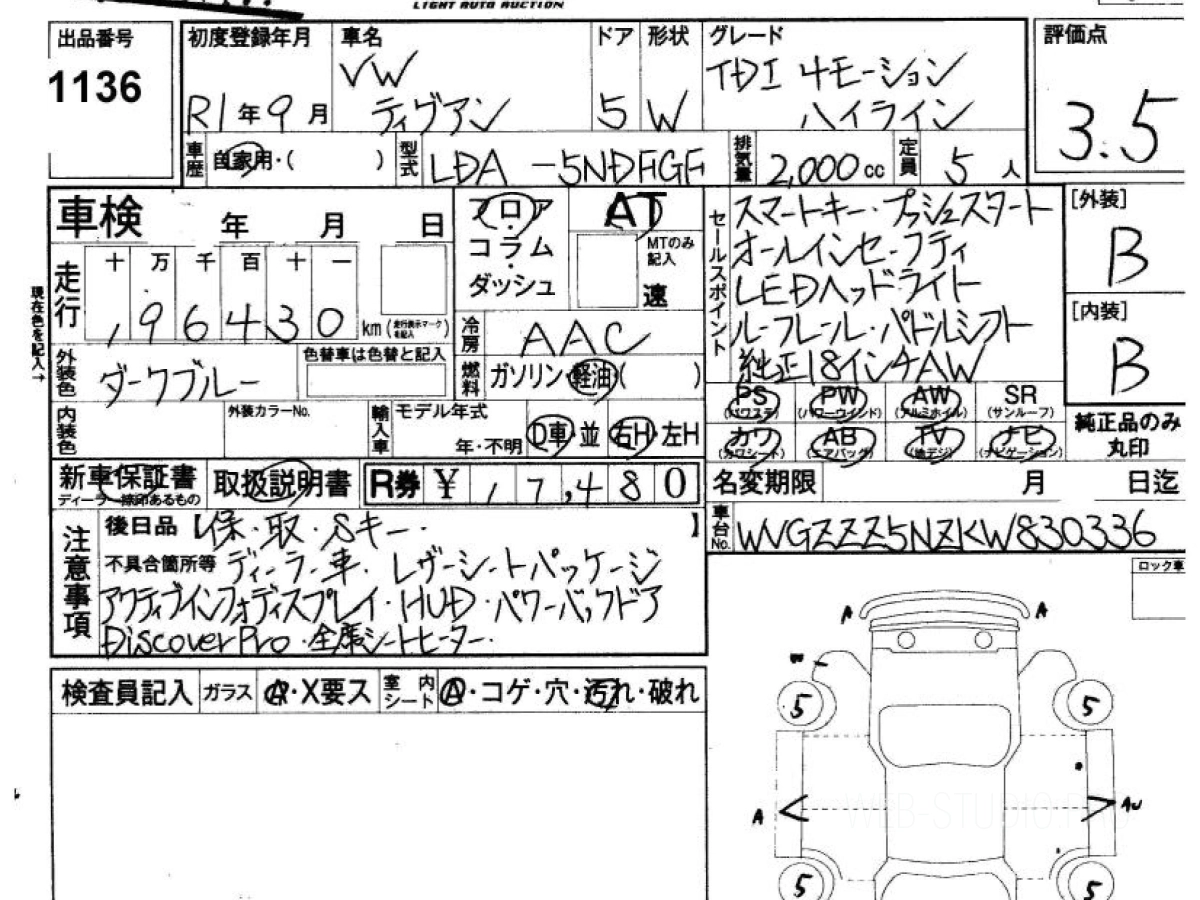 LIGHT AUTO AUCTION
出品番号
1136
初度登録年月
R1年9月
車名
VW
ティグアン
ドア
5
形状
W
グレード
TDI 4モーション
ハイライン
評価点
3.5
車歴
自家用・( )
型式
LDA-5NDFGF
排気量
2,000cc
定員
5人
車検 年 月 日
フロア
コラム
・
ダッシュ
AT
MTのみ
記入
速
セールスポイント
スマートキー・プッシュスタート
オールインセーフティ
LEDヘッドライト
ルーフレール・パドルシフト
純正18インチAW
[外装]
B
[内装]
B
現在色を記入→
走行
十 万 千 百 十 一
,96430
km(走行表示マークを記入)
冷房
AAC
外装色
ダークブルー
色替車は色替と記入
燃料
ガソリン・軽油( )
PS
(パワステ)
PW
(パワーウインド)
AW
(アルミホイル)
SR
(サンルーフ)
カワ
(カワシート)
AB
(エアバック)
TV
(地デジ)
ナビ
(ナビゲーション)
純正品のみ
丸印
内装色
外装カラーNo.
輸入車
モデル年式
年・不明
D車・並
右H・左H
新車保証書
ディーラー捺印あるもの
取扱説明書
R券 ¥ 17,480
名変期限 月 日迄
車台No.
WVGZZZ5NZKW830336
注意事項
後日品【保・取・Sキー・ 】
不具合箇所等 ディーラー車・レザーシートパッケージ
アクティブインフォディスプレイ・HUD・パワーバックドア
Discover Pro・全席シートヒーター・
検査員記入
ガラス
A・X要ス
室内シート
A・コゲ・穴・汚れ・破れ
ロック車
A A
5 5
A AU
5 5
WEB-STUDIO.PRO